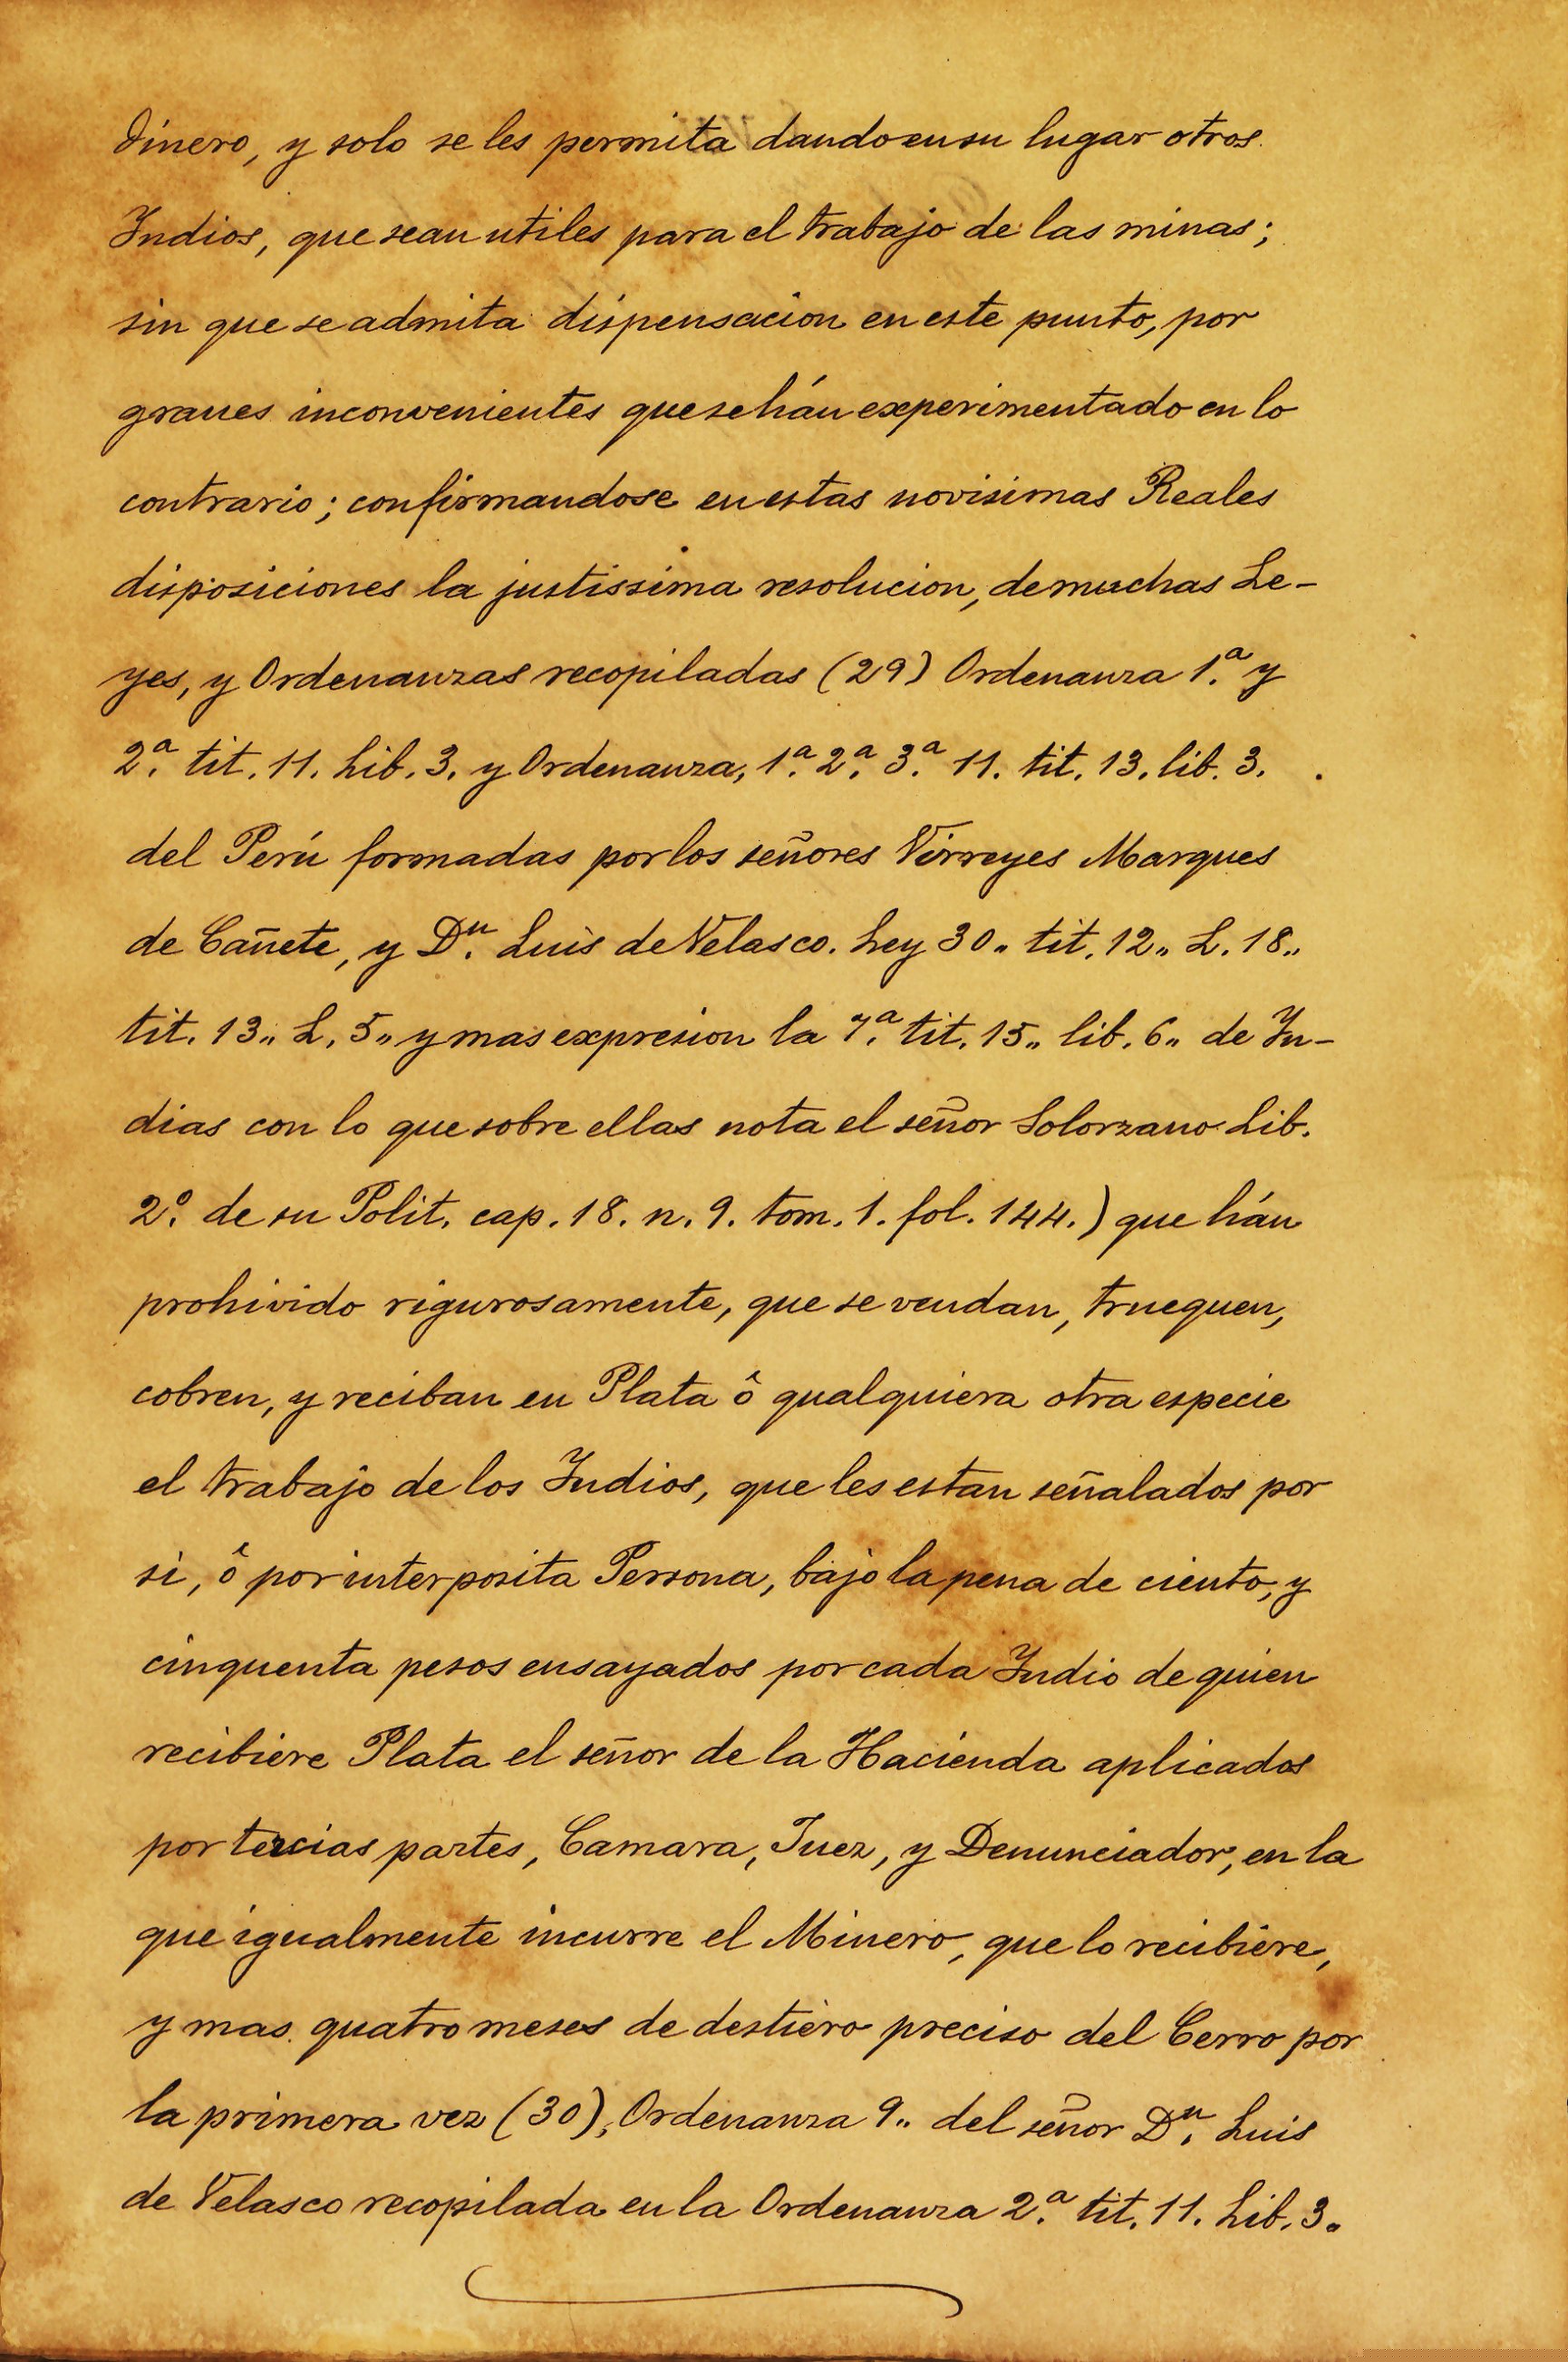 Dinero, y solo se les permita dando en su lugar otros
Indios, que sean utiles para el trabajo de las minas;
sin que se admita dispensacion en este punto, por
graues inconvenientes que se hán experimentado en lo
contrario; confirmandose en estas novisimas Reales
disposiciones la justissima resolucion, de muchas Le-
yes, y Ordenanzas recopiladas (29) Ordenanza 1.ª y
2.ª tit. 11. Lib. 3. y Ordenanza, 1.ª 2.ª 3.ª 11. tit. 13. lib. 3.
del Perú formadas por los señores Virreyes Marques
de Cañete, y D.n Luis de Velasco. Ley 30„ tit. 12„ L. 18„
tit. 13„ L. 5„ y mas expresion la 7.ª tit. 15„ lib. 6„ de In-
dias con lo que sobre ellas nota el señor Solorzano Lib.
2.º de su Polit. cap. 18. n. 9. tom. 1. fol. 144.) que hán
prohivido rigurosamente, que se vendan, truequen,
cobren, y reciban en Plata ô qualquiera otra especie
el trabajo de los Indios, que les estan señalados por
si, ô por interposita Persona, bajo la pena de ciento, y
cinquenta pesos ensayados por cada Indio de quien
recibiere Plata el señor de la Hacienda aplicados
por tercias partes, Camara, Juez, y Denunciador, en la
que igualmente incurre el Minero, que lo recibiere,
y mas quatro meses de destiero preciso del Cerro por
la primera vez (30), Ordenanza 9„ del señor D.n Luis
de Velasco recopilada en la Ordenanza 2.ª tit. 11. Lib. 3.